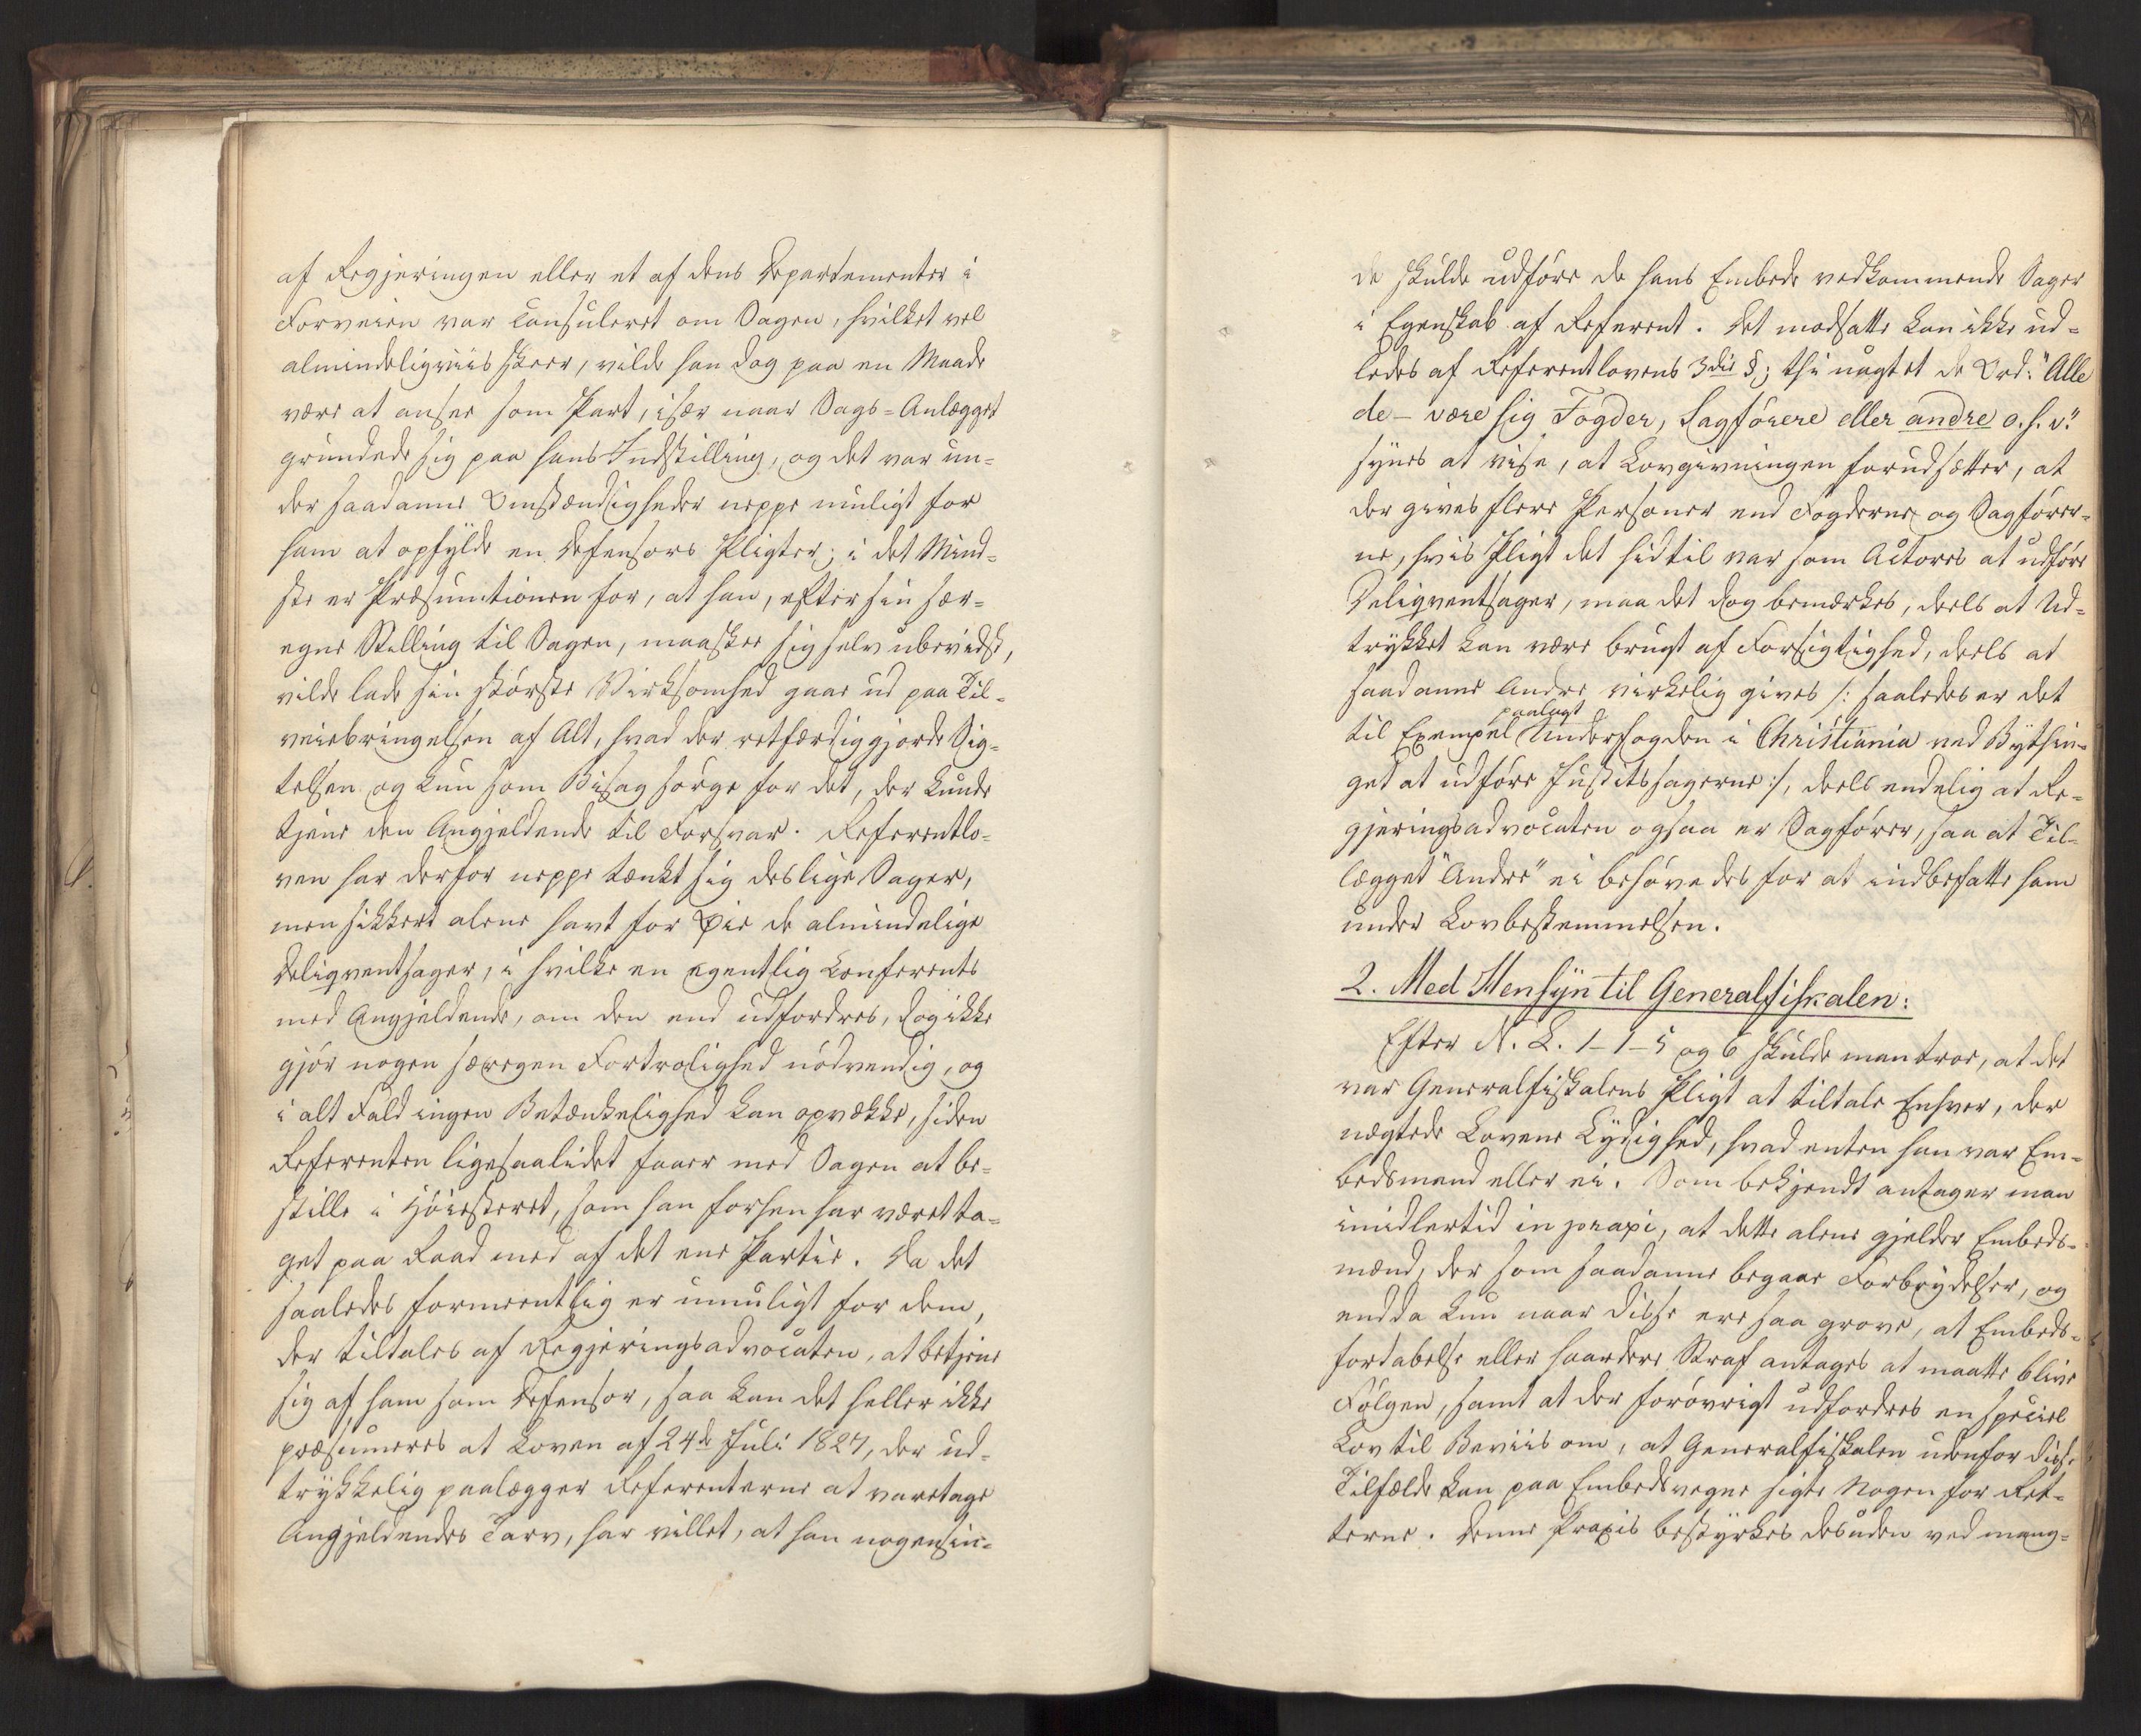 af Regjeringen eller et af dens Departementer i
Forveien var consuleret om Sagen, hvilket vel
almindeligviis skeer, vilde han dog paa en Maade
være at ansee som Part, især naar Sags-Anlægget
grundede sig paa hans Indstilling, og det var un-
der saadanne Omstændigheder neppe muligt for
ham at opfylde en Defensors Pligter; i det Mind-
ste er Præsumtionen for, at han, efter sin sær-
egne Stilling til Sagen, maaskee sig selv ubevidst,
vilde lade sin største Virksomhed gaae ud paa Til-
veiebringelsen af Alt, hvad der retfærdiggjorde Sig-
telsen og kun som Bisag sørge for det, der kunde
tjene den Angjeldende til Forsvar. Referentlo-
ven har derfor neppe tænkt sig deslige Sager,
men sikkert alene havt for Øie de almindelige
Deliqventsager, i hvilke en egentlig Conferents
med Angjeldende, om den end udfordres, dog ikke
gjør nogen særegen Fortrolighed nødvendig, og
i alt Fald ingen Betænkelighed kan opvække, siden
Referenten ligesaalidet faaer med Sagen at be-
stille i Høiesteret, som han forhen har været ta-
get paa Raad med af det ene Partie. Da det
saaledes formeentlig er umuligt for dem,
der tiltales af Regjeringsadvocaten, at betjene
sig af ham som Defensor, saa kan det heller ikke
præsumeres at Loven af 24de Juli 1827, der ud-
trykkelig paalægger Referenterne at varetage
Angjeldendes Tarv, har villet, at han nogensin-
de skulde udføre de hans Embede vedkommende Sager
i Egenskab af Referent. Det modsatte kan ikke ud-
ledes af Referentlovens 3die §; thi uagtet de Ord: "Alle
de – være sig Fogder, Sagførere eller andre o. s. v."
synes at vise, at Lovgivningen forudsætter, at
der gives flere Personer end Fogderne og Sagfører-
ne, hvis Pligt det hidtil var som Actores at udføre
Deliqventsager, maa det dog bemærkes, deels at Ud-
trykket kan være brugt af Forsigtighed, deels at
saadanne Andre virkelig gives /: saaledes er det
paalagt
til Exempel Underfogden i Christiania ved Bythin-
get at udføre Justitssagerne :/, deels endelig at Re-
gjeringsadvocaten ogsaa er Sagfører, saa at Til-
lægget "Andre" ei behøvedes for at indbefatte ham
under Lovbestemmelsen.
2. Med Hensyn til Generalfiskalen:
Efter N. L. 1-1-5 og 6 skulde man troe, at det
var Generalfiskalens Pligt at tiltale Enhver, der
nægtede Lovene Lydighed, hvad enten han var Em-
bedsmand eller ei. Som bekjendt antager man
imidlertid in praxi, at dette alene gjelder Embeds-
mænd, der som saadanne begaae Forbrydelser, og
endda kun naar disse ere saa grove, at Embeds-
fortabelse eller haardere Straf antages at maatte blive
Følgen, samt at der forøvrigt udfordres en speciel
Lov til Beviis om, at Generalfiskalen udenfor disse
Tilfælde kan paa Embedsvegne sigte Nogen for Ret-
terne. Denne Praxis bestyrkes desuden ved mang-